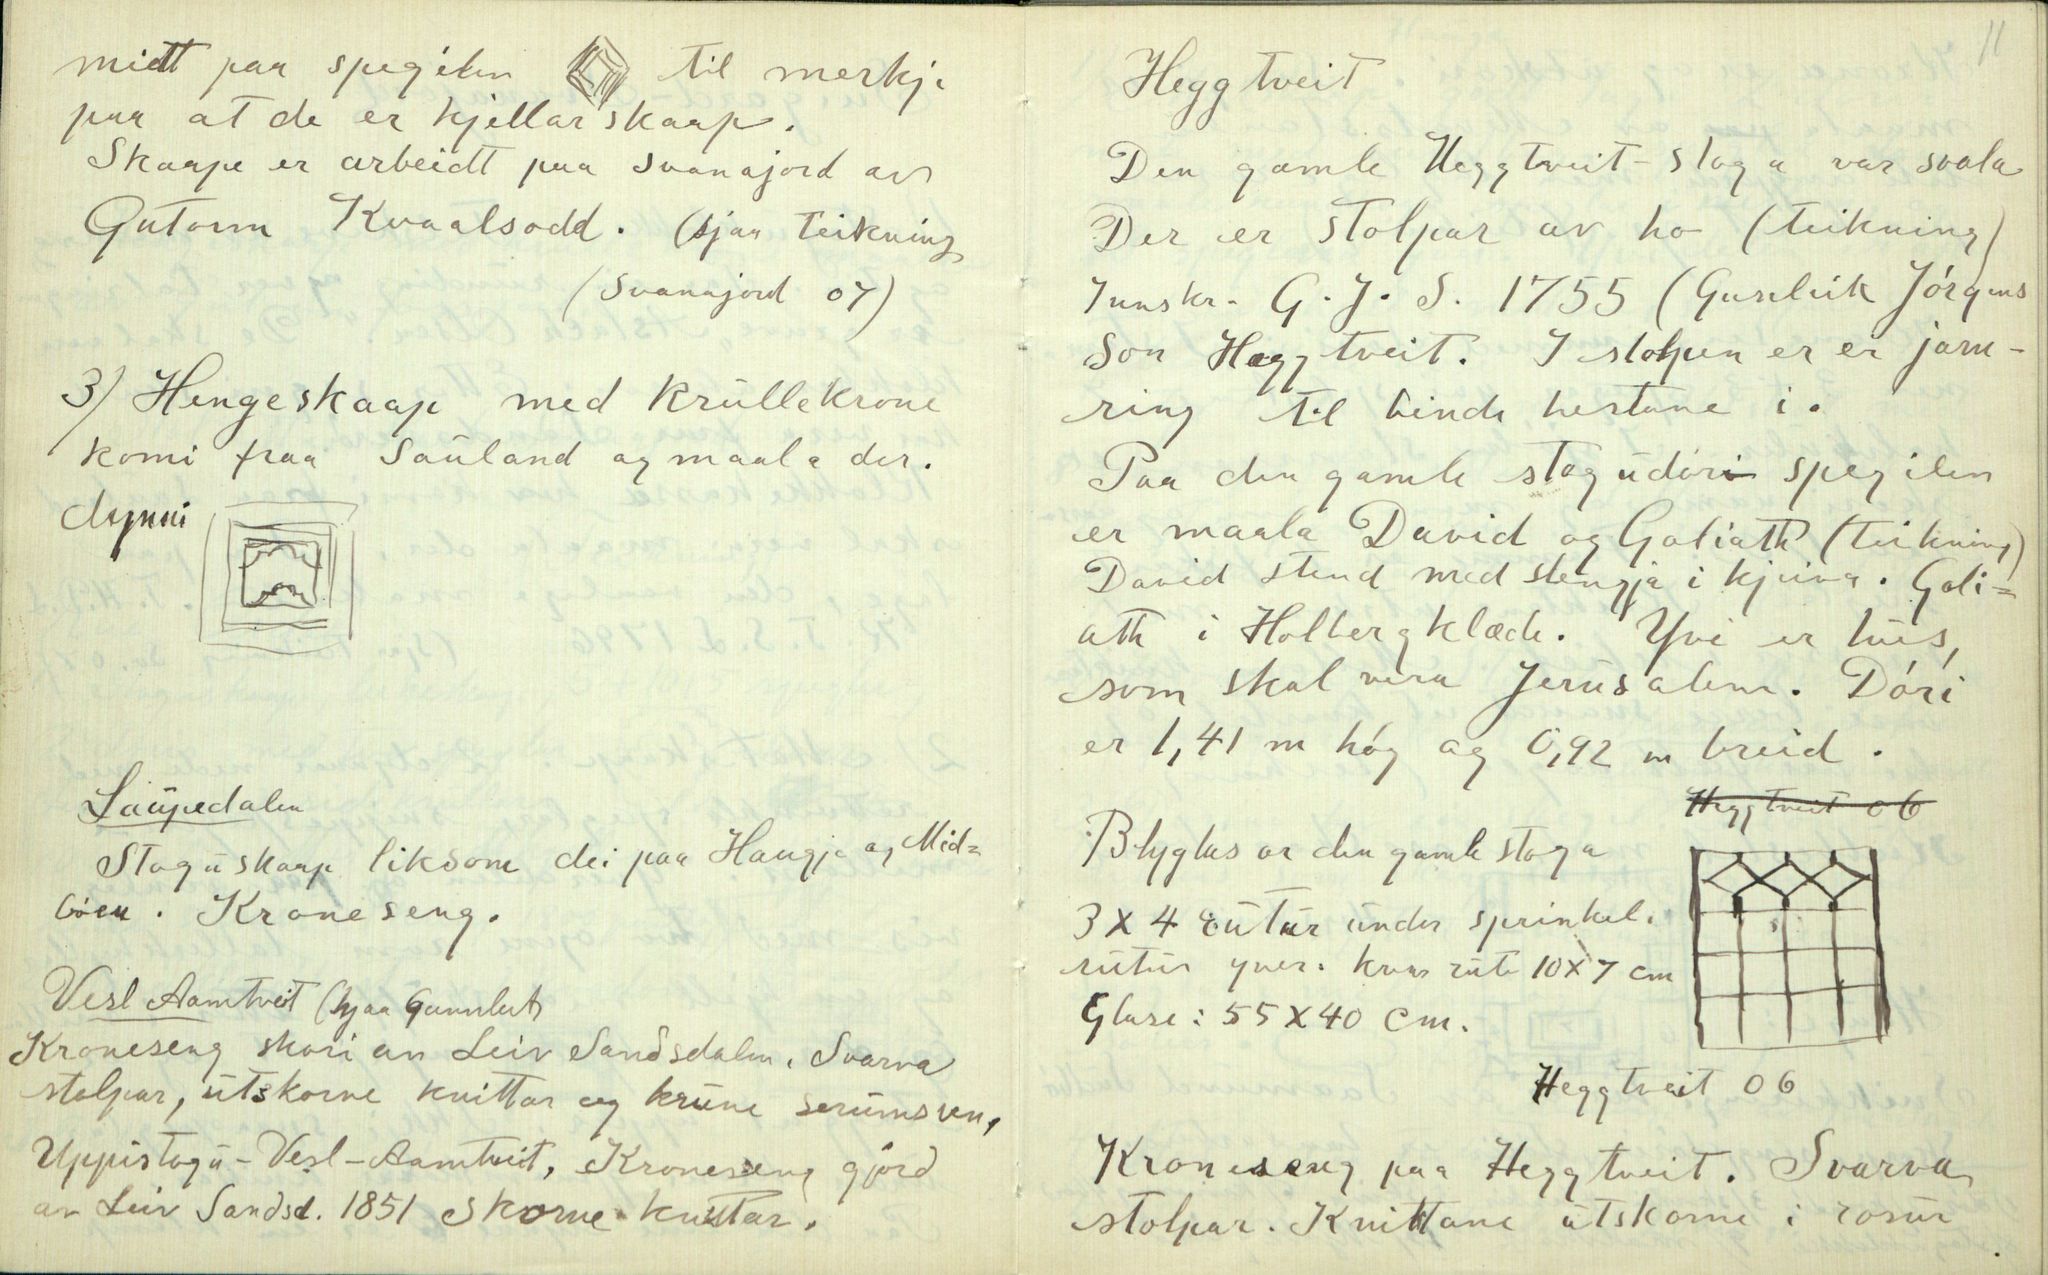 midt paa spegilen til merkje
paa at de er kjellarskaap.
Skaape er arbeidt paa Svanajord av
Gutorm Kvaalsodd. (sjaa teikning
(Svanajord 07)
3) Hengeskaap med krullekrone
komi fraa Sauland og maala der.
dynni
Laupedalen
Stoguskaap liksom dei paa Haugje og Mid=
böen. Kroneseng.
Vesl Aamtveit (sjaa Gunnleik
Kroneseng skori av Leiv Sandsdalen. Svarva
stolpar, utskorne knittar og krune serumsven,
Uppistogu-Vesl-Aamtveit, Kroneseng gjord
av Leiv Sandsd. 1851 skorne knittar.
11
Heggtveit
Den gamle Heggtveit-stoga var svala
Der er stolpar av ho (teikning)
Innskr. G. J. S. 1755 (Gunleik Jörgens
son Heggtveit. I stolpen er ei jarn-
ring til binde hestane i.
Paa den gamle stogudöri spegilen
er maala David og Goliath (teikning)
David stend med slengja i kjeiva. Goli=
ath i Holbergklæde. Yvi er hus,
som skal vera Jerusalem. Döri
er 1,41 m hög og 0,92 m breid.
Heggtveit 06
Blyglas or den gamle stoga
3 X 4 rutur under sprinkel.
rutur yver. kvar rute 10 X 7 cm
Glase: 55 X 40 cm.
Heggtveit 06
Kroneseng paa Heggtveit. Svarva
stolpar. Knittane utskorne i rosur